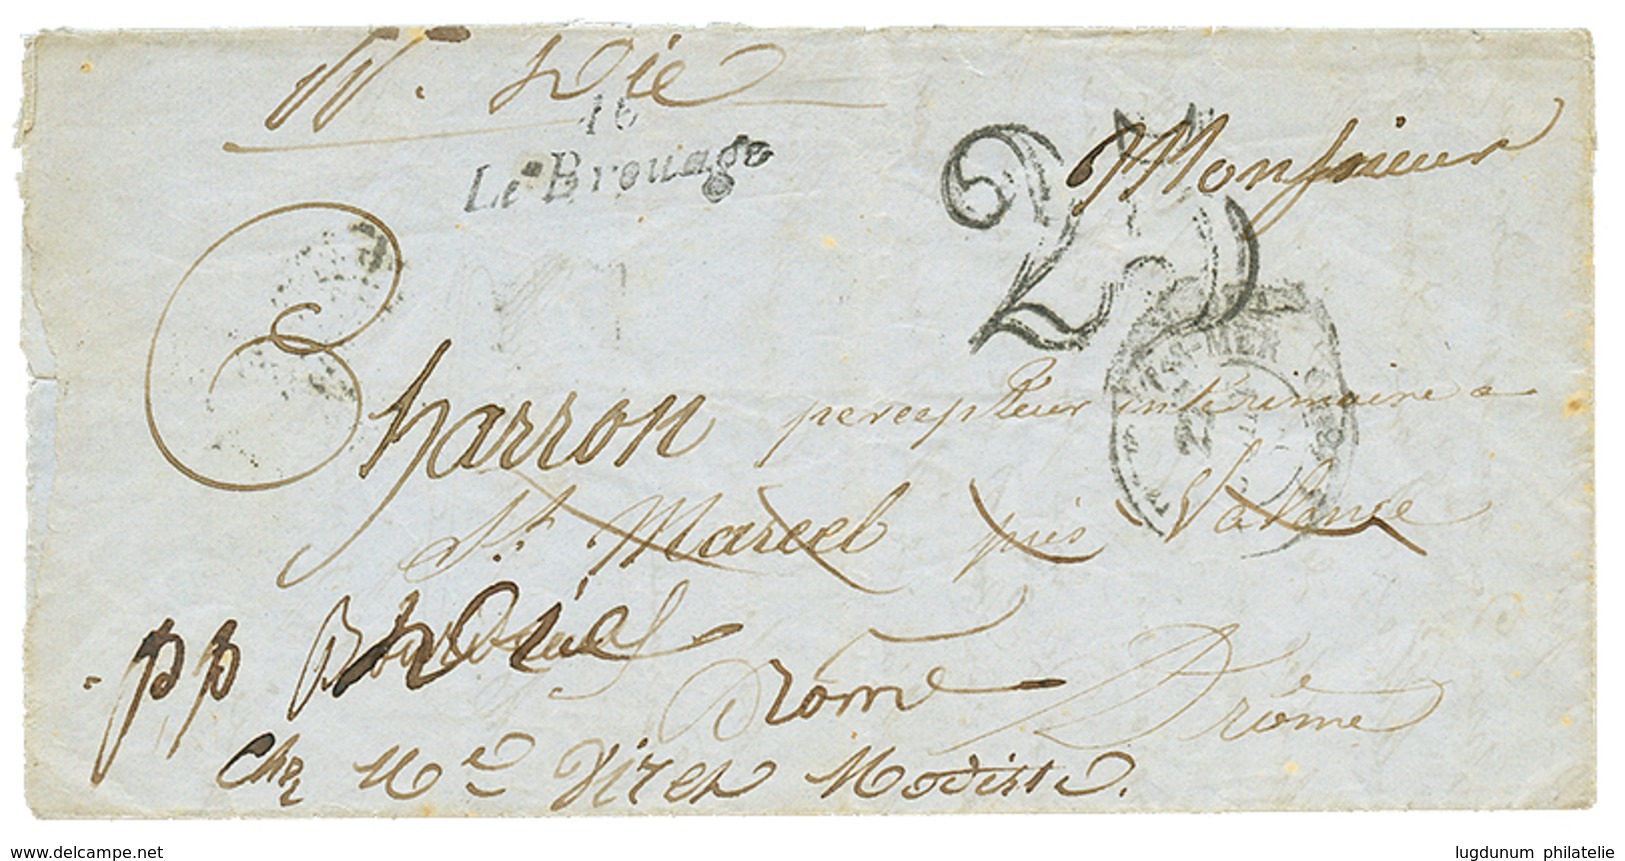 Die
16
Le Brouage
25
Monsieur
Charron percepteur intérimaire a
St. Marcel près Valence
pp Die
Drôme Drôme
Chez Me Viret Modiste.
delcampe.net
lugdunum philatelie